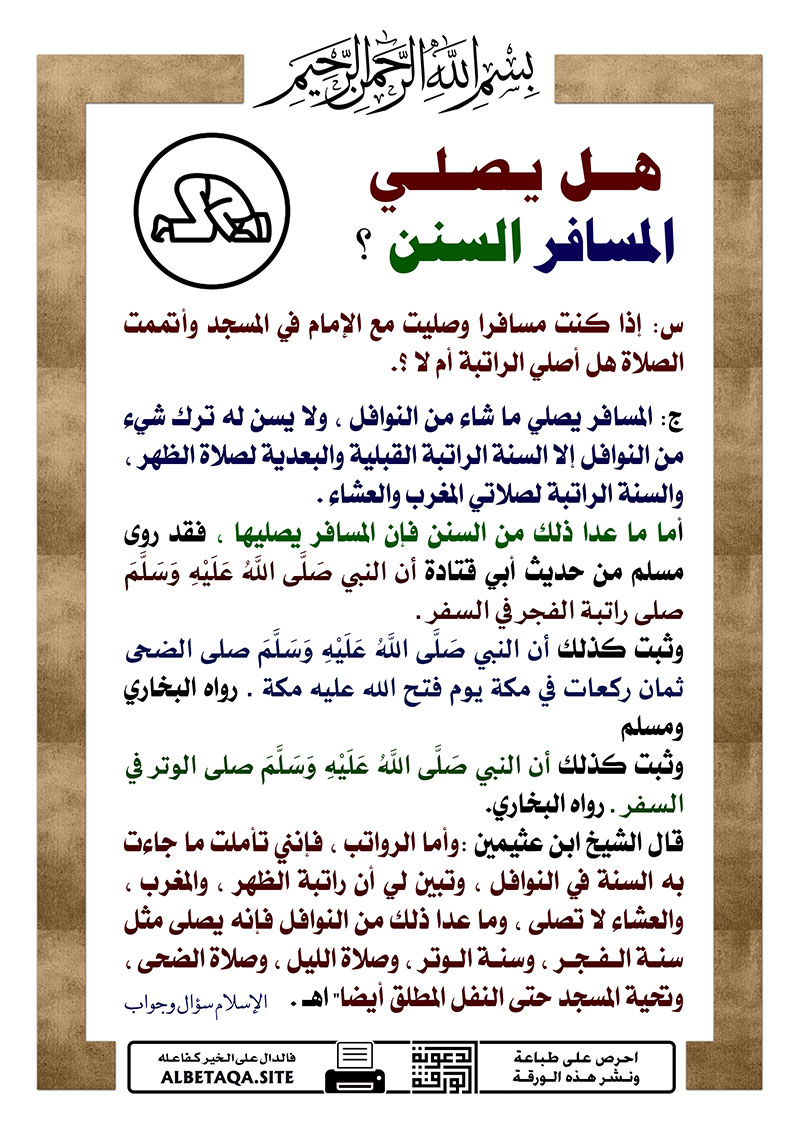 بسم الله الرحمن الرحيم
هـــل يـصـلـــي
المسافر السنن ؟
س: إذا كنت مسافرا وصليت مع الإمام في المسجد وأتممت
الصلاة هل أصلي الراتبة أم لا ؟.
ج: المسافر يصلي ما شاء من النوافل ، ولا يسن له ترك شيء
من النوافل إلا السنة الراتبة القبلية والبعدية لصلاة الظهر ،
والسنة الراتبة لصلاتي المغرب والعشاء .
أما ما عدا ذلك من السنن فإن المسافر يصليها ، فقد روى
مسلم من حديث أبي قتادة أن النبي صَلَّى اللَّهُ عَلَيْهِ وَسَلَّمَ
صلى راتبة الفجر في السفر .
وثبت كذلك أن النبي صَلَّى اللَّهُ عَلَيْهِ وَسَلَّمَ صلى الضحى
ثمان ركعات في مكة يوم فتح الله عليه مكة . رواه البخاري
ومسلم
وثبت كذلك أن النبي صَلَّى اللَّهُ عَلَيْهِ وَسَلَّمَ صلى الوتر في
السفر . رواه البخاري.
قال الشيخ ابن عثيمين :وأما الرواتب ، فإنني تأملت ما جاءت
به السنة في النوافل ، وتبين لي أن راتبة الظهر ، والمغرب ،
والعشاء لا تصلى ، وما عدا ذلك من النوافل فإنه يصلى مثل
سنـة الـفـجـر ، وسنـة الـوتر ، وصلاة الليل ، وصلاة الضحى ،
وتحية المسجد حتى النفل المطلق أيضا" اهـ . الإسلام سؤال وجواب
احرص على طباعة
ونـشـر هـذه الـورقـة
الدعوية
الورقة
فالدال على الخير كفاعله
ALBETAQA.SITE